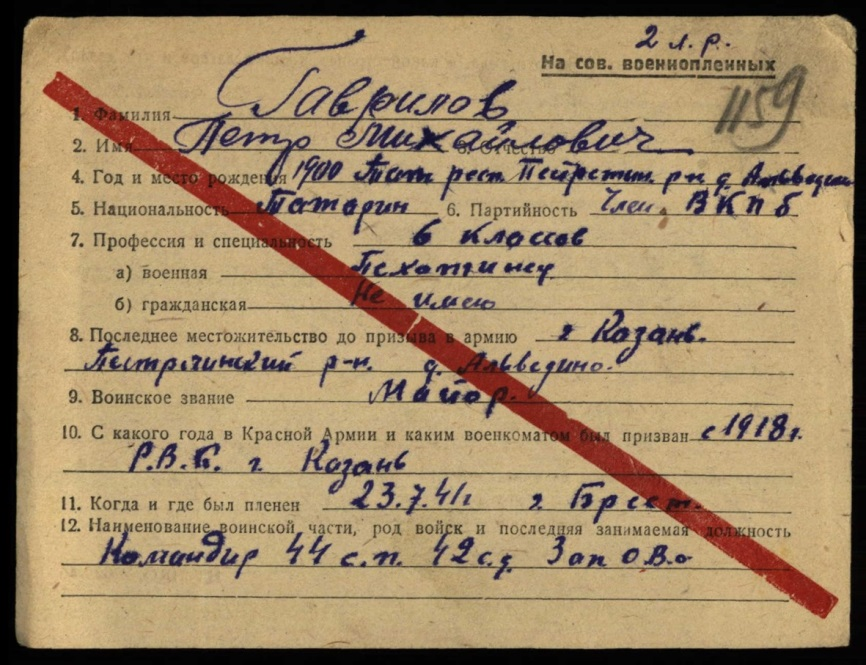 2 л. р.
На сов. военнопленных
1159
1. Фамилия Гаврилов
2. Имя Петр Михайлович 3. Отчество
4. Год и место рождения 1900 Тат респ. Пестречин. р-н д. Альведино
5. Национальность Татарин 6. Партийность Член ВКПб
7. Профессия и специальность 6 классов
а) военная Пехотинец
б) гражданская Не имею
8. Последнее местожительство до призыва в армию г Казань.
Пестречинский р-н. д. Альведино.
9. Воинское звание Майор.
10. С какого года в Красной Армии и каким военкоматом был призван с 1918 г.
Р.В.К. г. Казань
11. Когда и где был пленен 23.7.41г г. Брест.
12. Наименование воинской части, род войск и последняя занимаемая должность
Командир 44 с.п. 42 с.д. Зап О.В.о